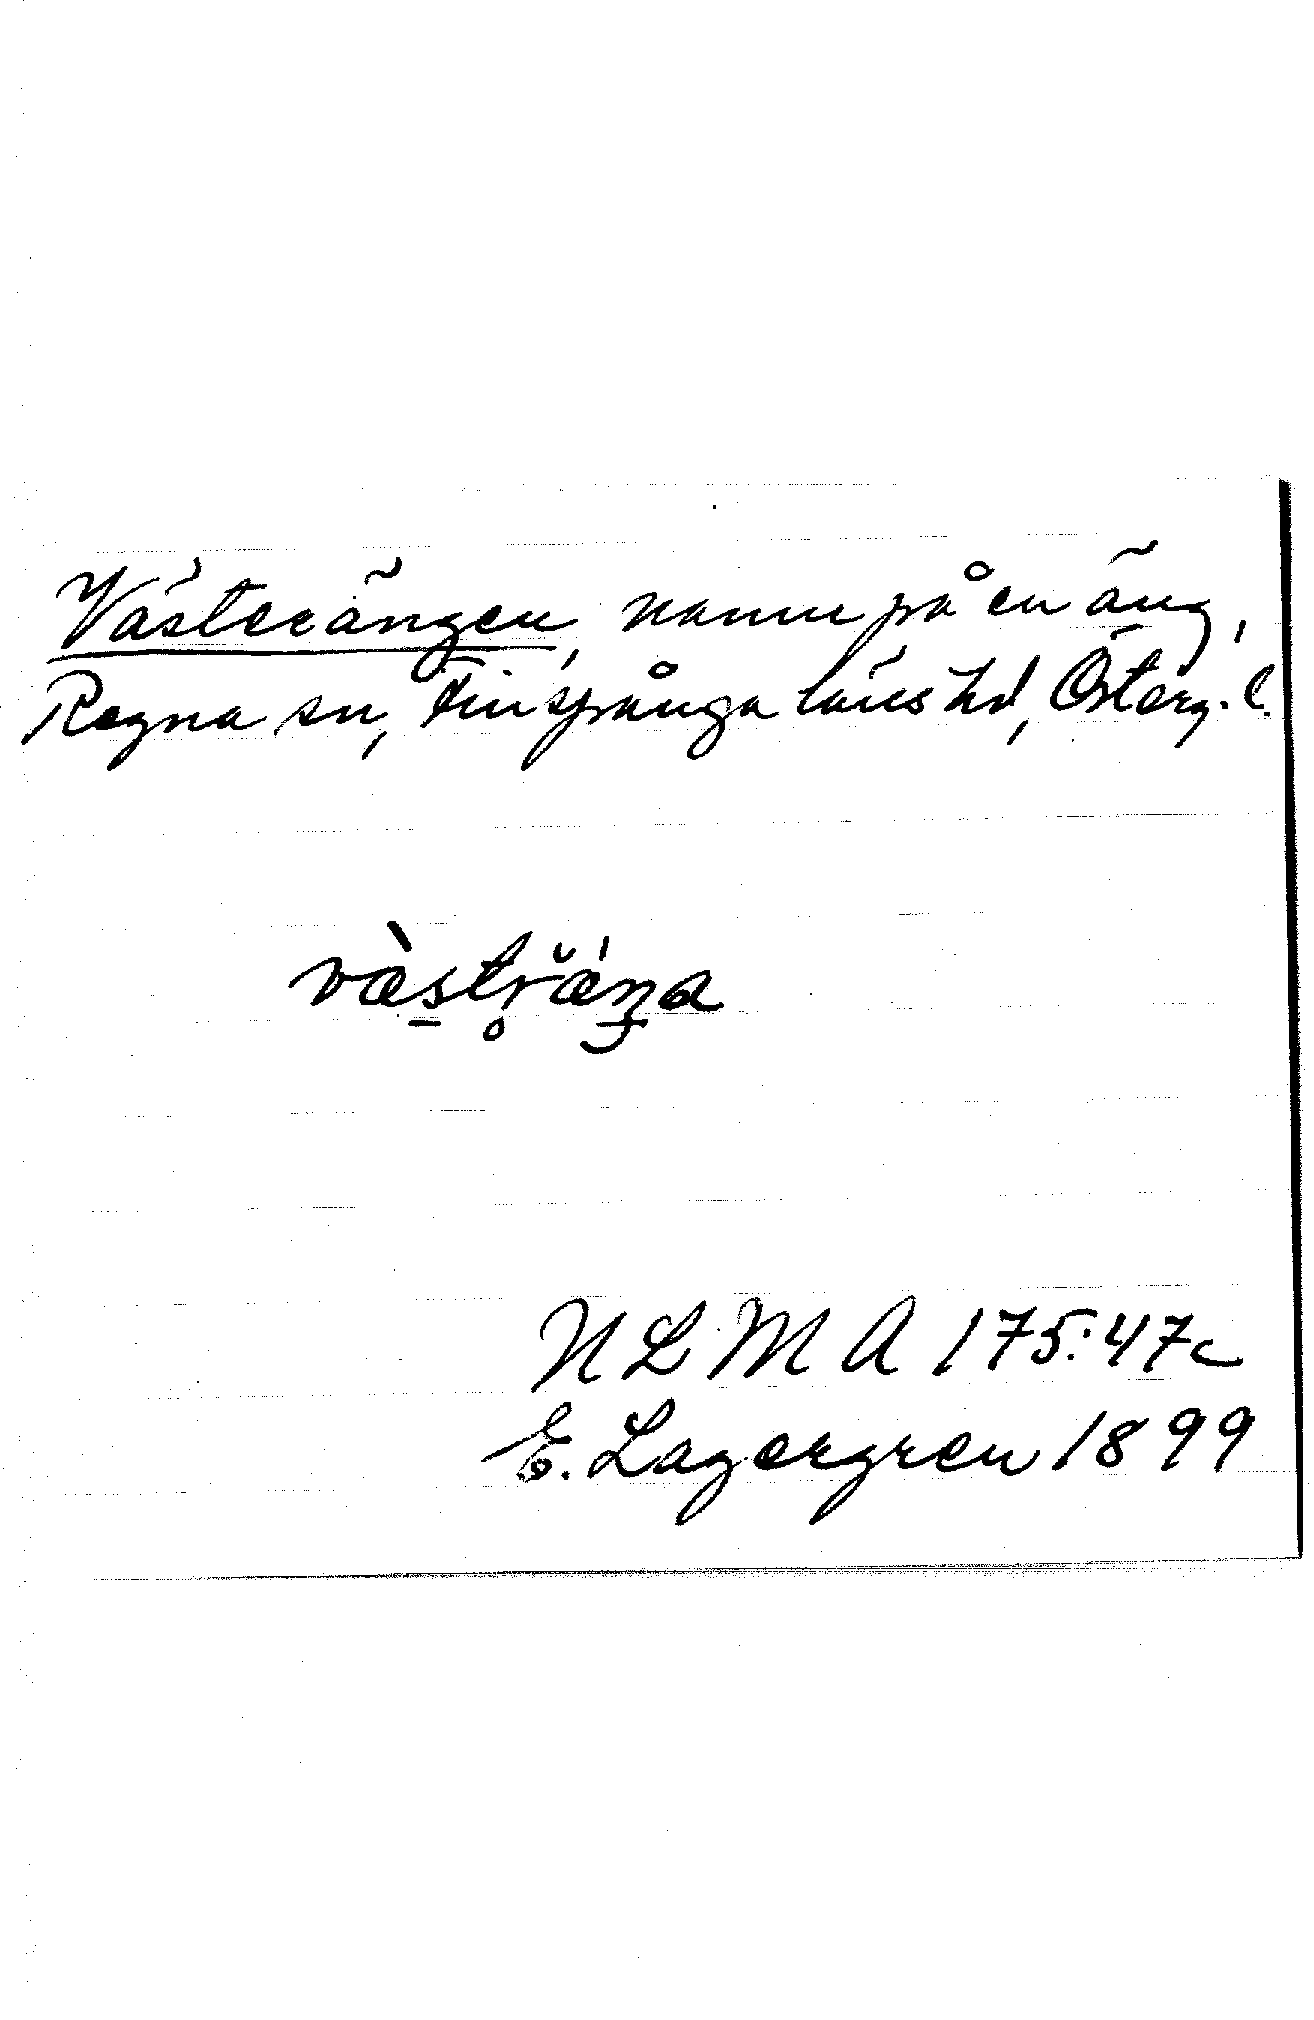 Västerängen, namn på en äng,
Regna sn, Finspånga läns hd, Österg. l.
væ̀str̥̆ǽŋa
N L M A 175:47c
E. Lagergren 1899